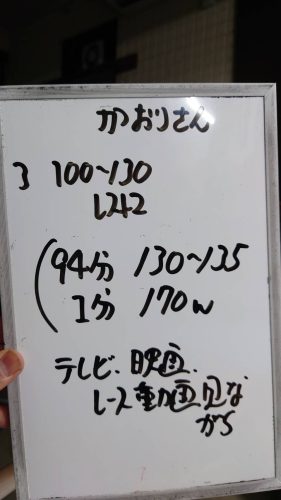 かおりさん
3 100~130
L342
(94分 130~135
1分 170w
テレビ、映画、
レース動画見な
がら